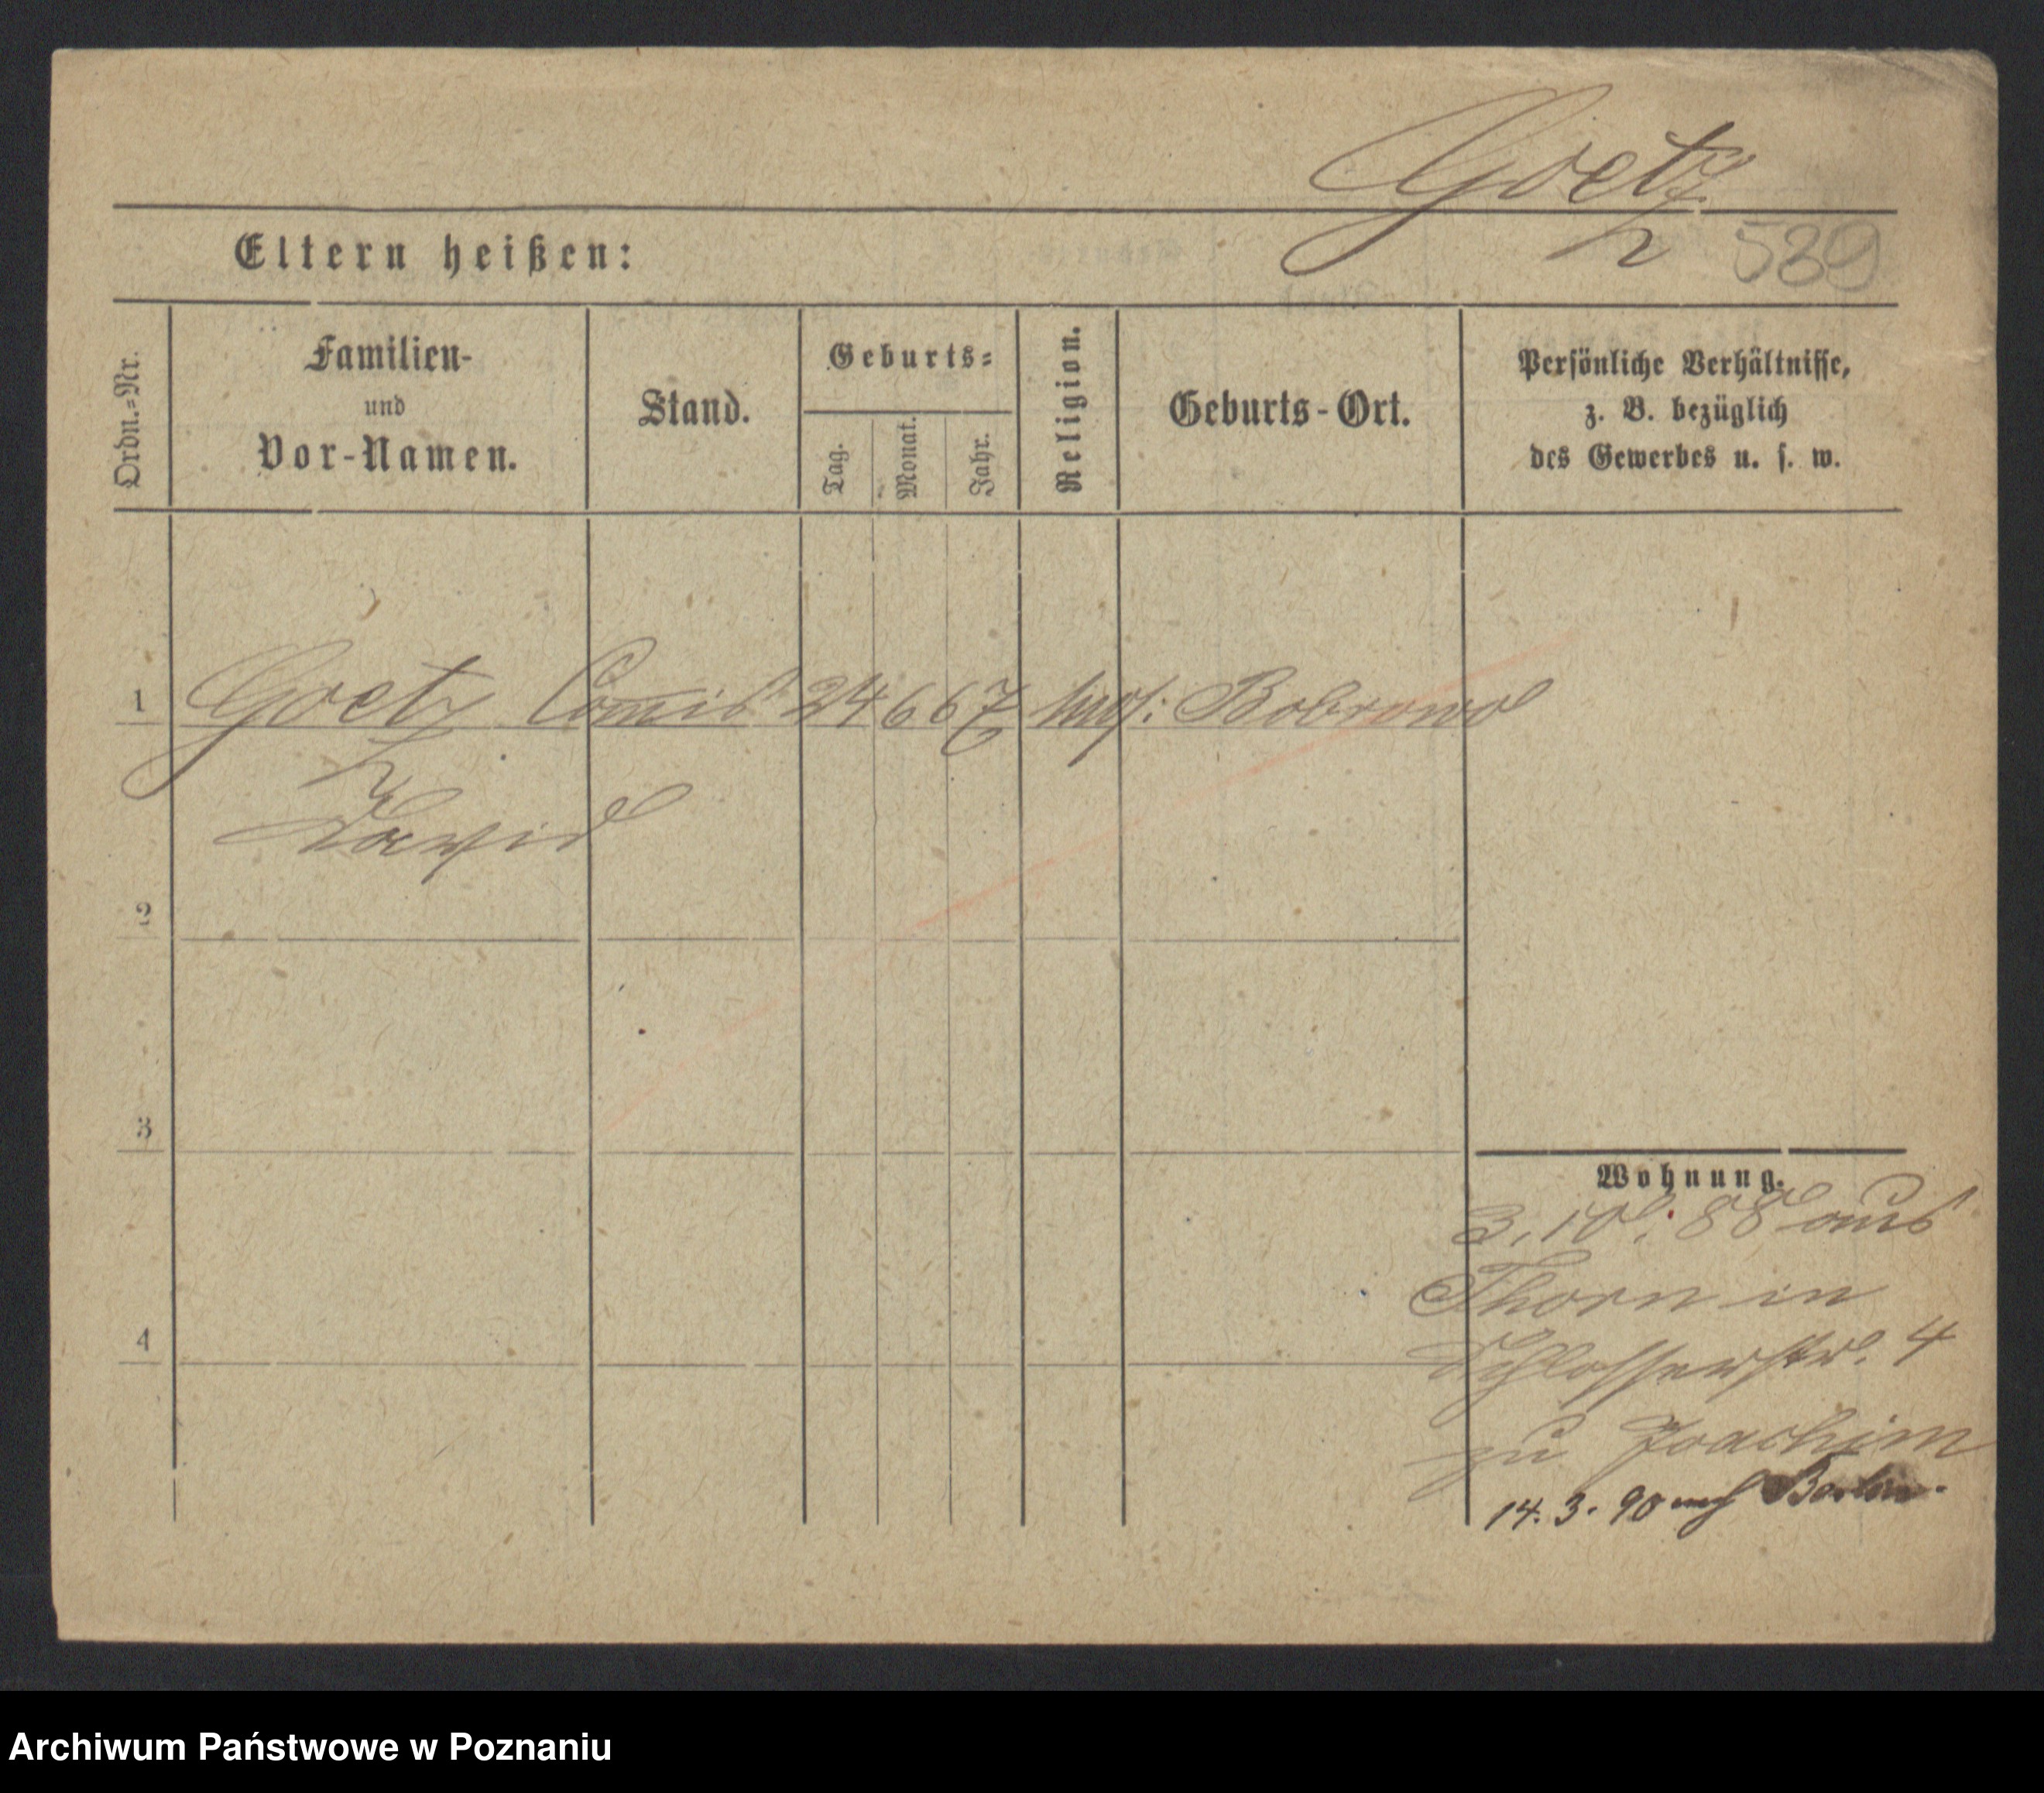 Goetz
539
Eltern heißen:
Ordn.=Nr.
Familien-
und
Vor-Namen.
Stand.
Geburts=
Tag.
Monat.
Jahr.
Religion.
Geburts-Ort.
Persönliche Verhältnisse,
z. B. bezüglich
des Gewerbes u. s. w.
1 Goetz Commis 24 6 67 mos: Bobrowo
David
2
3
4
Wohnung.
3. 10. 88 aus
Thorn in
Schlosserstr. 4
zu Joachim
14. 3. 90 nach Berlin.
Archiwum Państwowe w Poznaniu